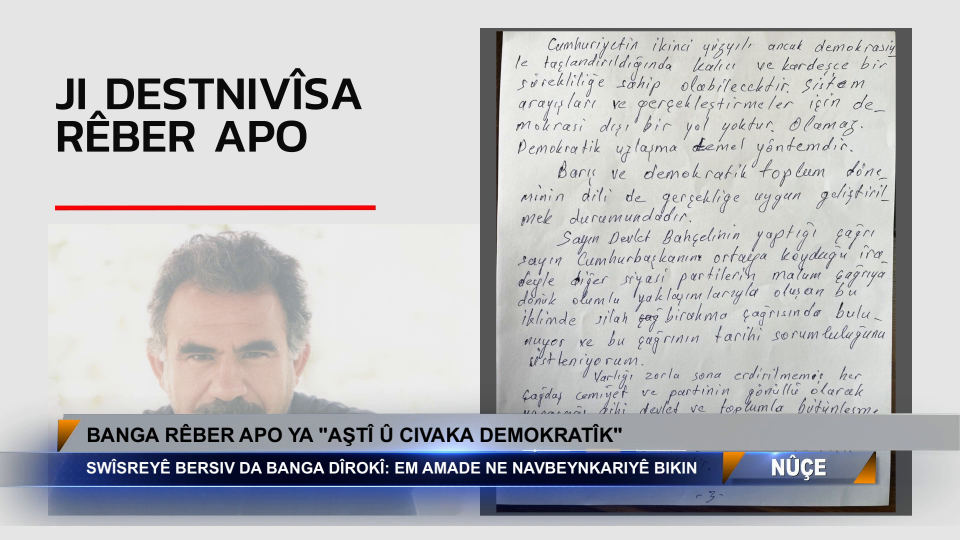 JI DESTNIVÎSA
RÊBER APO
Cumhuriyetin ikinci yüzyılı ancak demokrasiy
le taçlandırıldığında kalıcı ve kardeşce bir
sürekliliğe sahip olabilecektir. Sistem
arayışları ve gerçekleştirmeler için de_
mokrasi dışı bir yol yoktur. Olamaz.
Demokratik uzlaşma temel yöntemdir.
Barış ve demokratik toplum döne_
minin dili de gerçekliğe uygun geliştiril_
mek durumundadır.
Sayın Devlet Bahçelinin yaptığı çağrı
sayın Cumhurbaşkanın ortaya koyduğu ira_
deyle diğer siyasi partilerin malum çağrıya
dönük olumlu yaklaşımlarıyla oluşan bu
iklimde silah bırakma çağrısında bulu_
nuyor ve bu çağrının tarihi sorumluluğunu
üstleniyorum.
Varlığı zorla sona erdirilmemiş her
çağdaş cemiyet ve partinin gönüllü olarak
gibi devlet ve toplumla bütünleşme
BANGA RÊBER APO YA "AŞTÎ Û CIVAKA DEMOKRATÎK"
SWÎSREYÊ BERSIV DA BANGA DÎROKÎ: EM AMADE NE NAVBEYNKARIYÊ BIKIN
NÛÇE
-3-